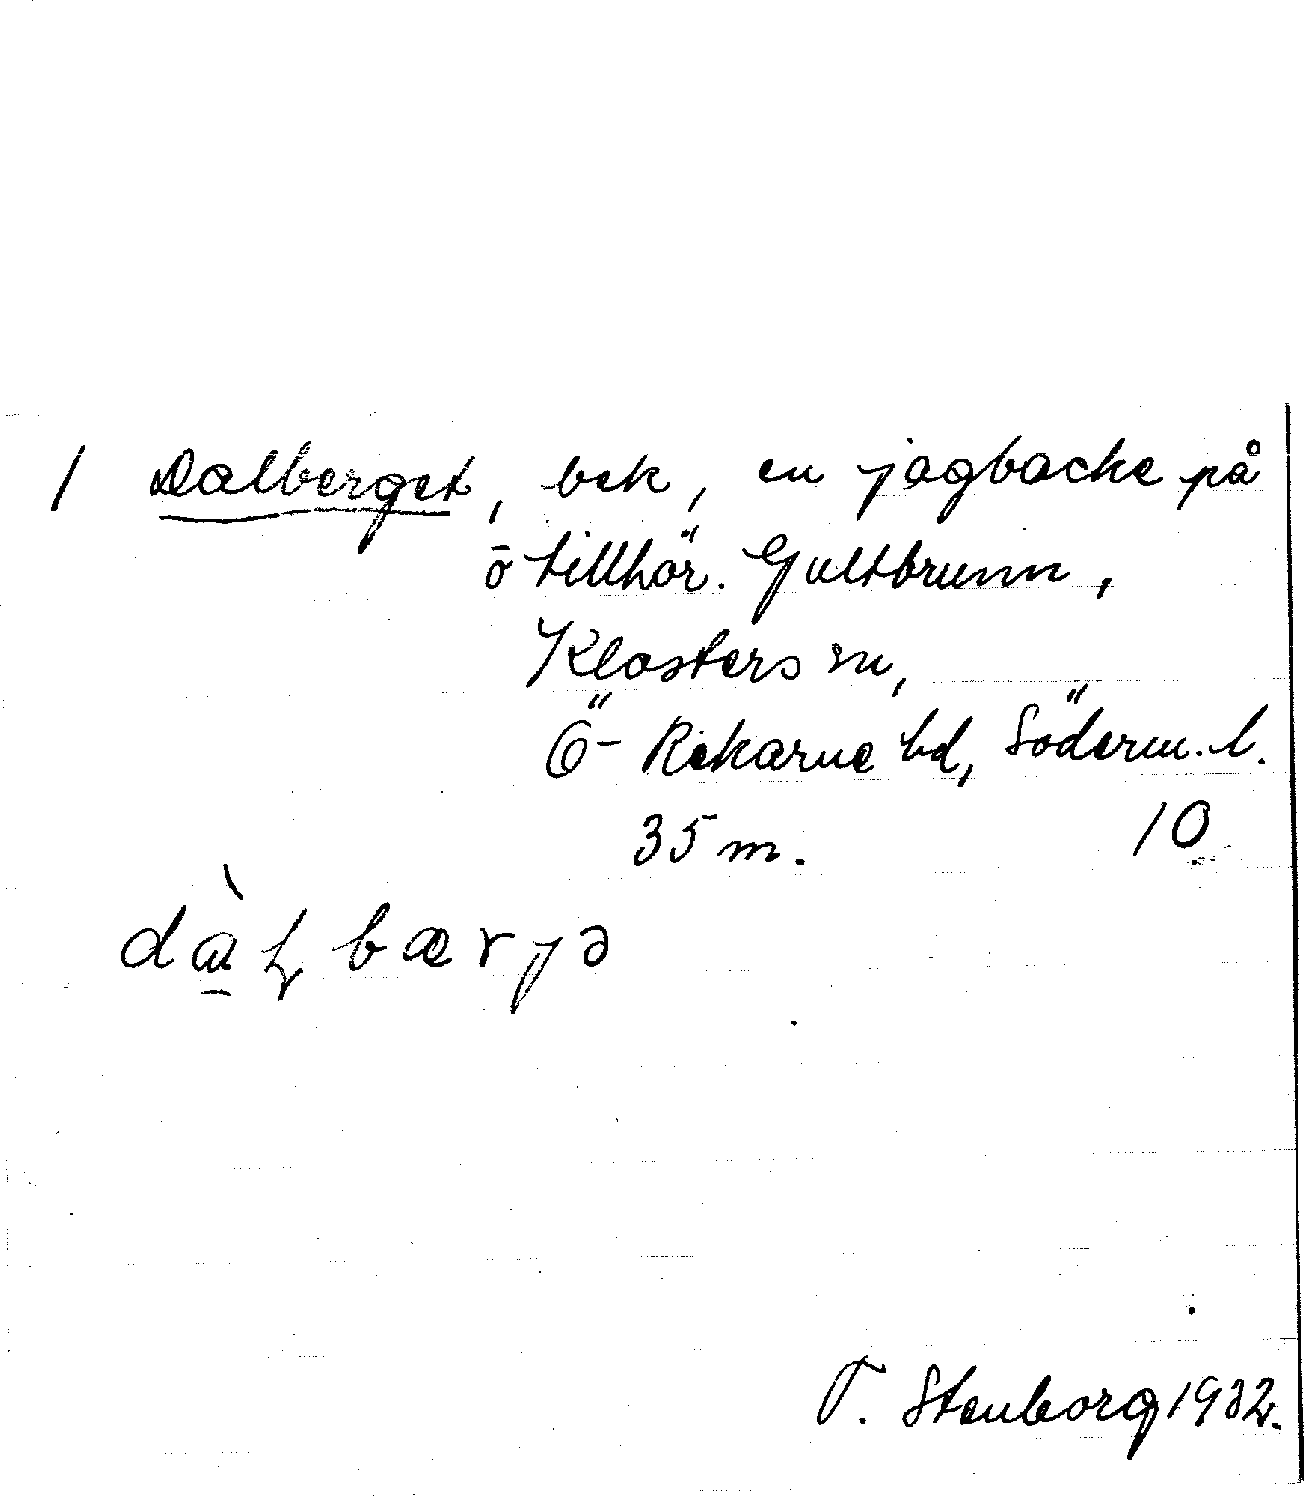 1 Dalberget, bck, en jagbacke på
ö tillhör. Gultbrunn,
Klosters sn,
Ö- Rekarne hd, Söderm. l.
35 m. 10
dà̱ɽbærjə
T. Stenborg 1932.